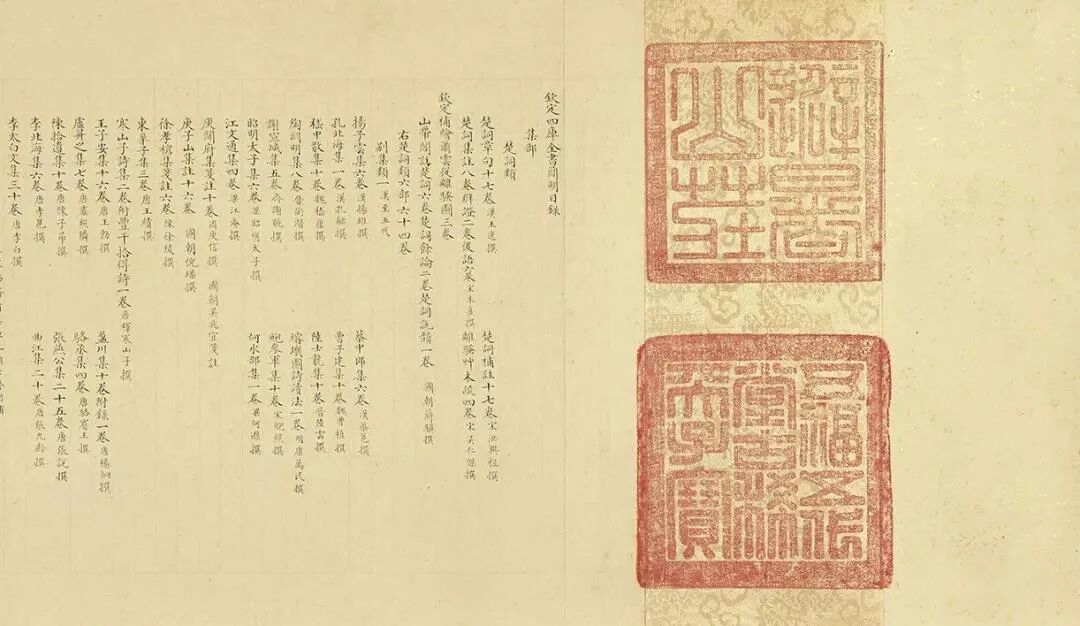 避暑山莊
五福五代堂古稀天子寶
欽定四庫全書簡明目錄
集部
楚詞類
楚詞章句十七卷漢王逸撰 楚詞補註十七卷宋洪興祖撰
楚詞集註八卷辯證二卷後語六卷宋朱熹撰 離騷艸木疏四卷宋吳仁傑撰
欽定補繪蕭雲從離騷圖三卷
山帶閣註楚詞六卷楚詞餘論二卷楚詞說韻一卷 國朝蔣驥撰
右楚詞類六部六十四卷
別集類一漢至五代
揚子雲集六卷漢揚雄撰 蔡中郎集六卷漢蔡邕撰
孔北海集一卷漢孔融撰 曹子建集十卷魏曹植撰
嵇中散集十卷魏嵇康撰 陸士龍集十卷晉陸雲撰
陶淵明集八卷晉陶潛撰 璿璣圖詩讀法一卷明康萬民撰
謝宣城集五卷齊謝朓撰 鮑參軍集十卷宋鮑照撰
昭明太子集六卷梁昭明太子撰 何水部集一卷梁何遜撰
江文通集四卷梁江淹撰
庾開府集箋註十卷周庾信撰 國朝吳兆宜箋註
庾子山集註十六卷 國朝倪璠撰
徐孝穆集箋註六卷陳徐陵撰
東皋子集三卷唐王績撰
寒山子詩集二卷附豐干拾得詩一卷唐釋寒山子撰
王子安集十六卷唐王勃撰 盈川集十卷附錄一卷唐楊炯撰
盧昇之集七卷唐盧照鄰撰 駱丞集四卷唐駱賓王撰
陳拾遺集十卷唐陳子昂撰 張燕公集二十五卷唐張說撰
李北海集六卷唐李邕撰 曲江集二十卷唐張九齡撰
李太白文集三十卷唐李白撰